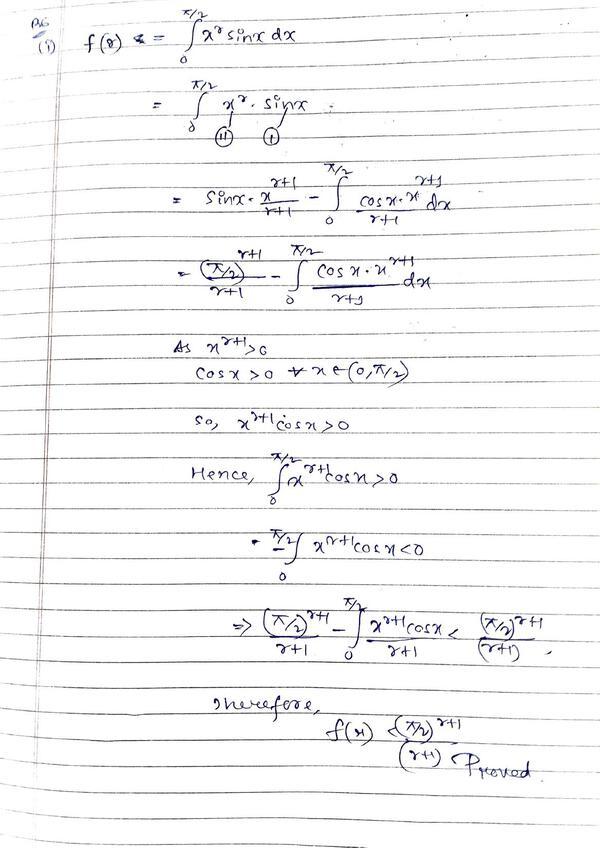 B6
(i) f(r) = ∫₀^{π/2} x^r sinx dx
= ∫₀^{π/2} x^r · sinx
(II) (I)
= sinx · x^{r+1}/(r+1) - ∫₀^{π/2} (cosx · x^{r+1})/(r+1) dx
= (π/2)^{r+1}/(r+1) - ∫₀^{π/2} (cosx · x^{r+1})/(r+1) dx
As x^{r+1} > 0
cosx > 0 ∀ x ∈ (0, π/2)
so, x^{r+1} cosx > 0
Hence, ∫₀^{π/2} x^{r+1} cosx > 0
- ∫₀^{π/2} x^{r+1} cosx < 0
⇒ (π/2)^{r+1}/(r+1) - ∫₀^{π/2} (x^{r+1} cosx)/(r+1) < (π/2)^{r+1}/(r+1).
Therefore,
f(r) < (π/2)^{r+1}/(r+1) Proved